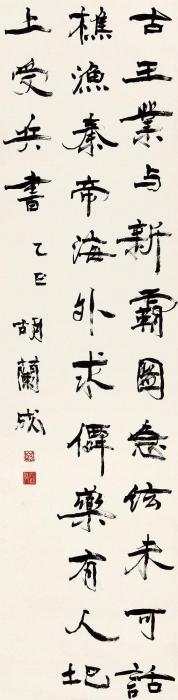 古王業与新霸圖急弦未可話
樵漁秦帝海外求僊藥有人圯
上受兵書
乙巳
胡蘭成